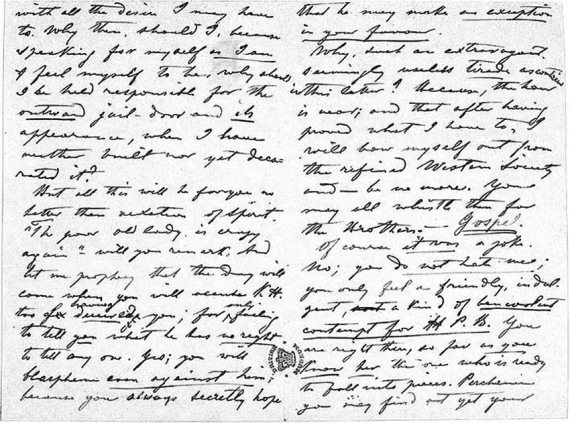 with all the desire I may have
to. Why then, should I, because
speaking for myself as I am
& feel myself to be, why should
I be held responsible for the
outward jail-door and its
appearance, when I have
neither built nor yet deco-
rated it?
But all this will be for you no
better than vexation of spirit.
"The poor old lady is crazy
again" will you remark. And
let me prophesy that the day will
come when you will accuse K.H.
too of having deceived you; for only failing
to tell you what he has no right
to tell any one. Yes; you will
blaspheme even against him;
because you always secretly hope
that he may make an exception
in your favour.
Why, such an extravagant,
seemingly useless tirade as contained
in this letter? Because, the hour
is near; and that after having
proved what I have to, I
will bow myself out from
the refined Western Society
and — be no more. You
may all whistle then for
the Brothers. — Gospel.
Of course it was a joke.
No; you do not hate me;
you only feel a friendly, indul-
gent, a kind of benevolent
contempt for H.P.B. You
are right there, so far as you
know her the one who is ready
to fall into pieces. Perchance
you may find out yet your